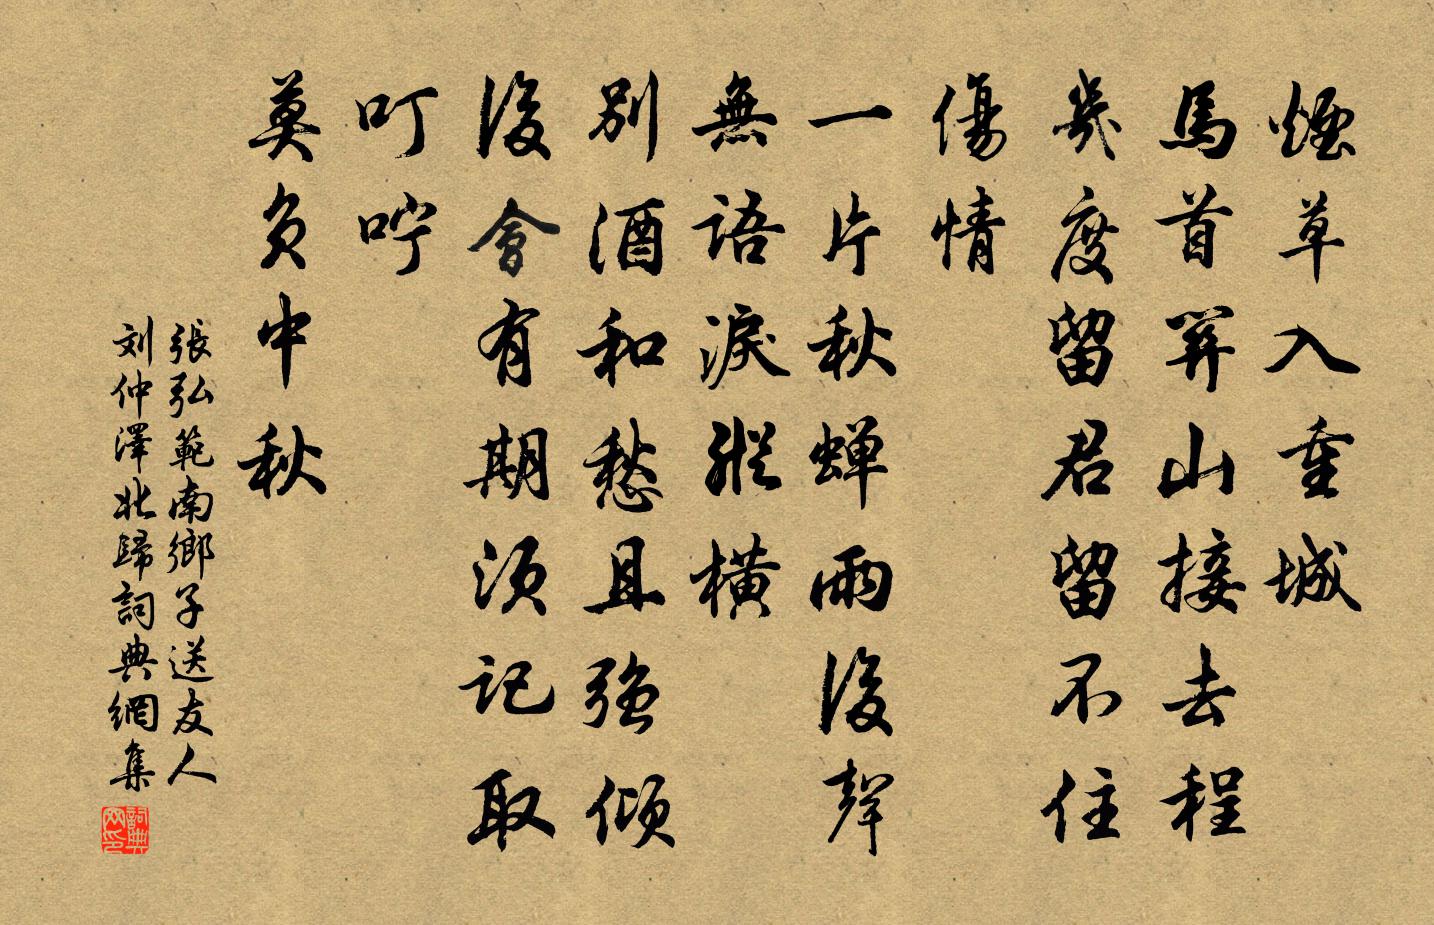 煙草入重城
馬首關山接去程
幾度留君留不住
傷情
一片秋蟬雨後聲
無語淚縱橫
別酒和愁且强傾
後會有期須記取
叮嚀
莫負中秋
張弘範南鄉子送友人
刘仲澤北歸詞典網集
詞典網印